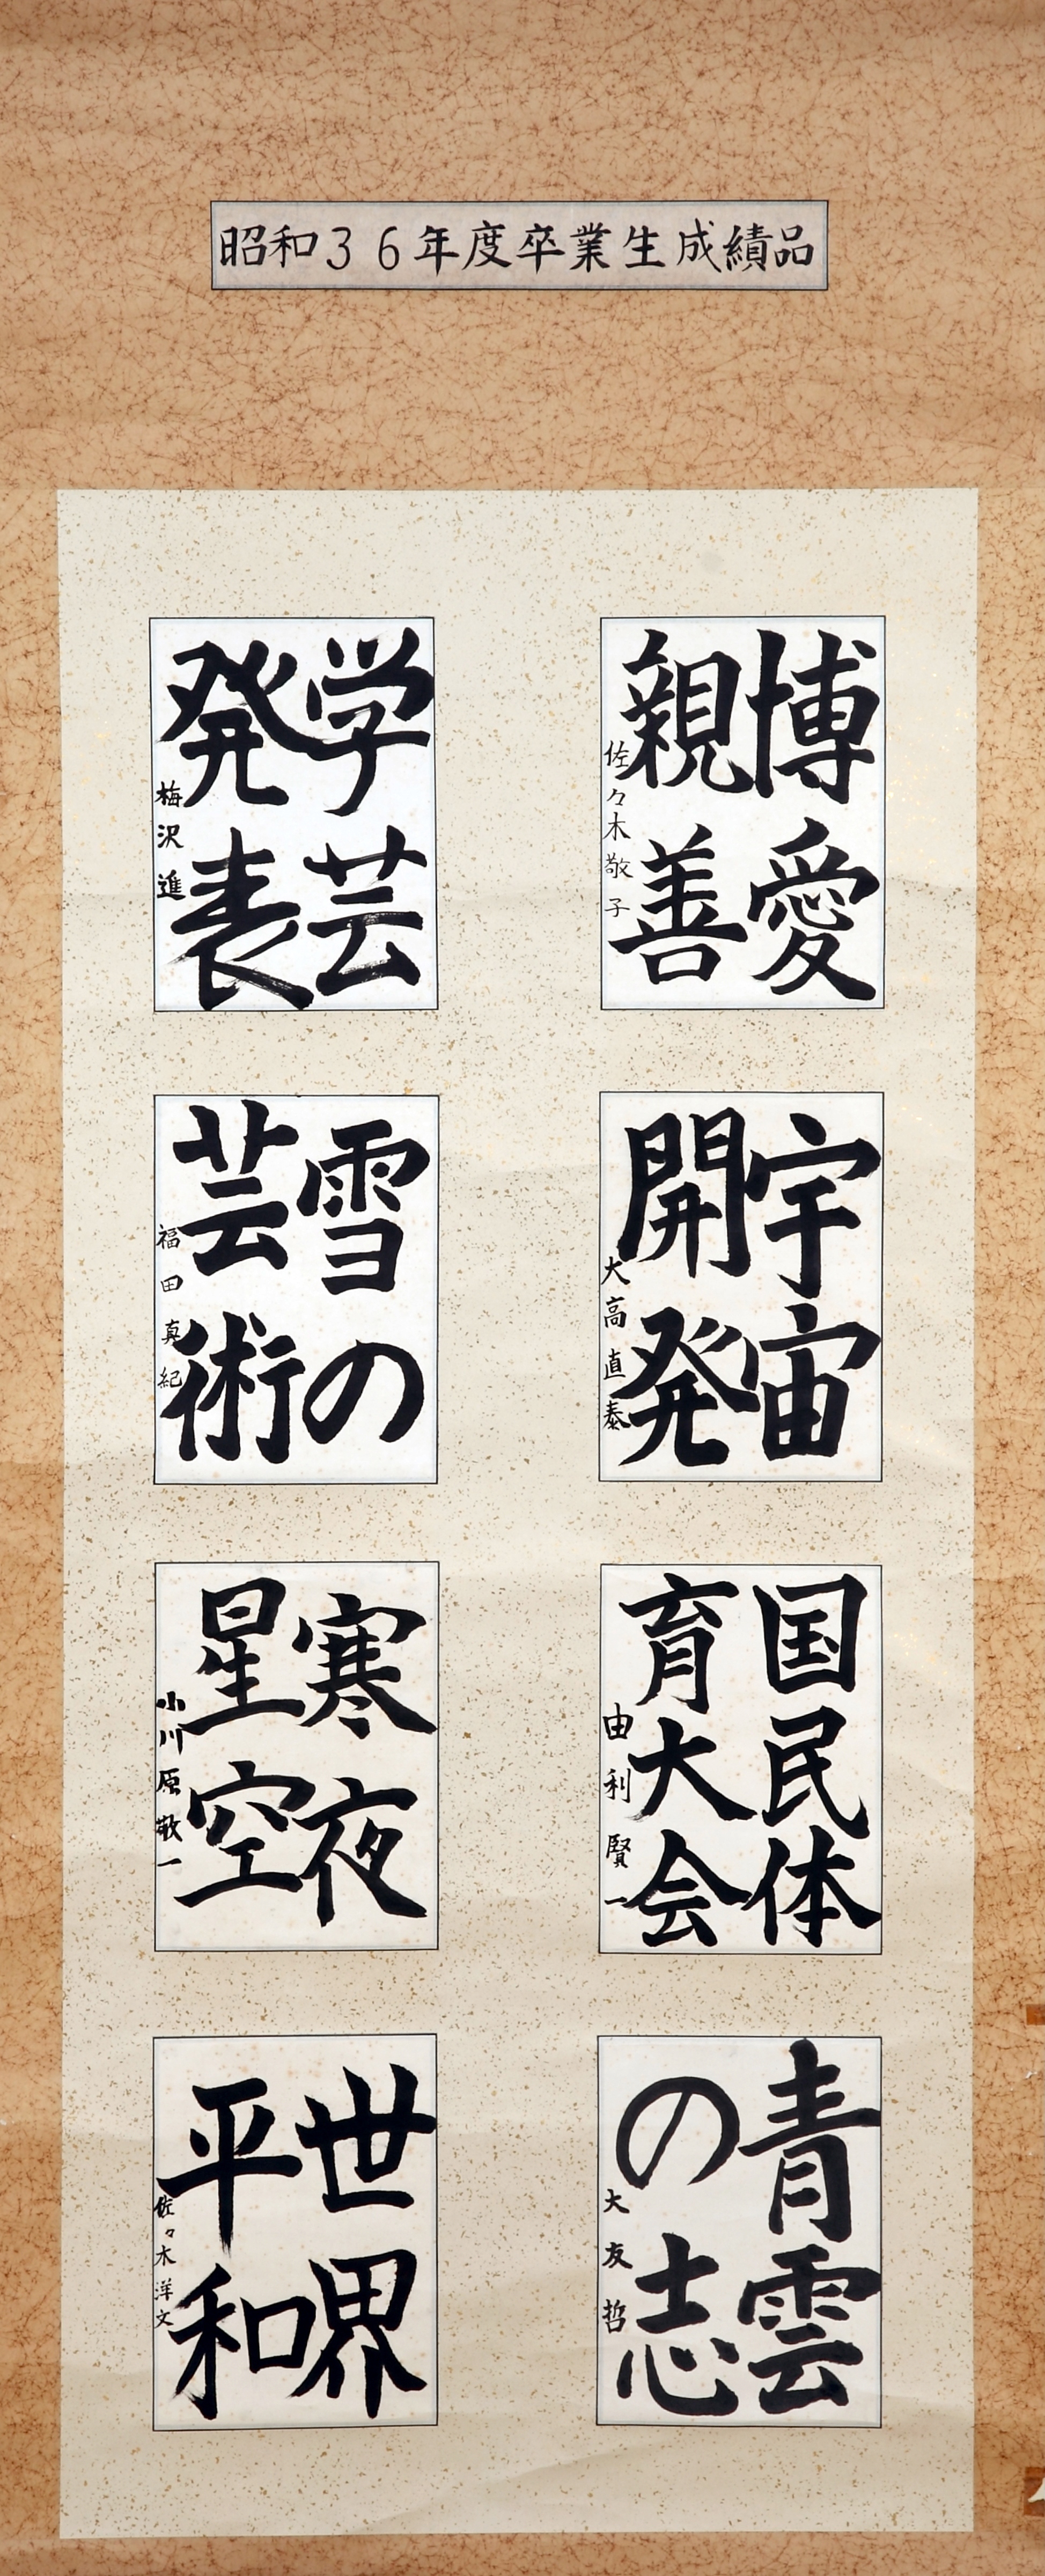 昭和36年度卒業生成績品
博愛
親善
佐々木敬子
宇宙
開発
大高直泰
国民体
育大会
由利賢一
青雲
の志
大友哲
学芸
発表
梅沢進
雪の
芸術
福田真紀
寒夜
星空
小川原敬一
世界
平和
佐々木洋文